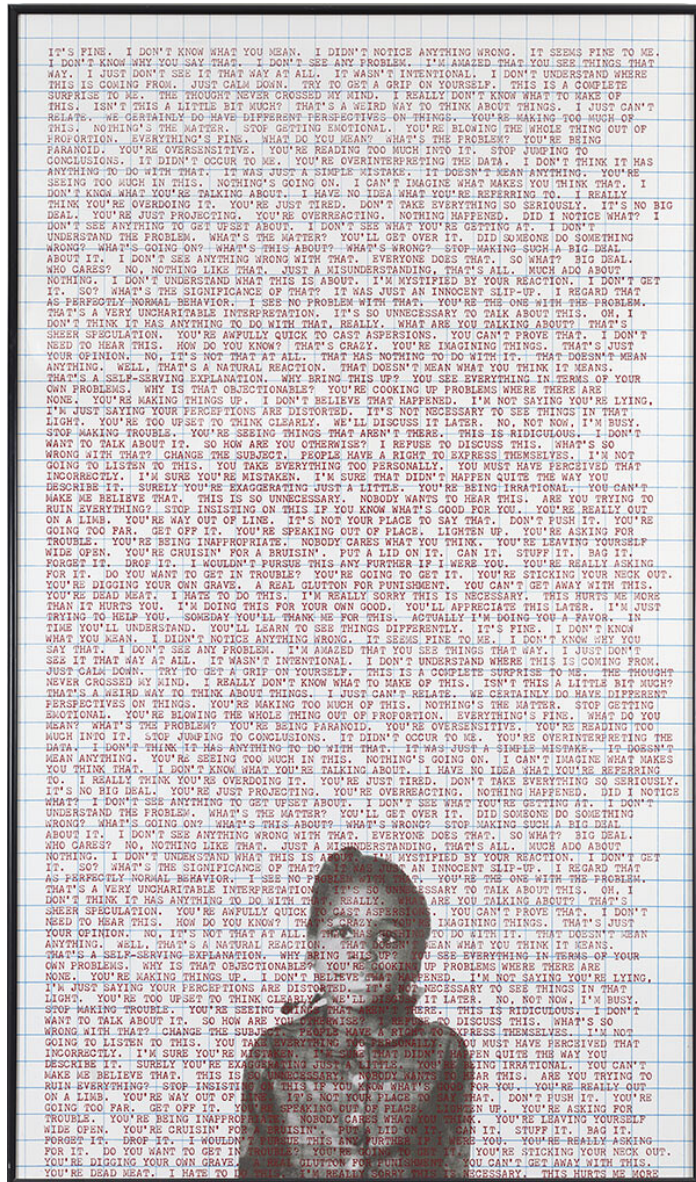 IT'S FINE. I DON'T KNOW WHAT YOU MEAN. I DIDN'T NOTICE ANYTHING WRONG. IT SEEMS FINE TO ME.
I DON'T KNOW WHY YOU SAY THAT. I DON'T SEE ANY PROBLEM. I'M AMAZED THAT YOU SEE THINGS THAT
WAY. I JUST DON'T SEE IT THAT WAY AT ALL. IT WASN'T INTENTIONAL. I DON'T UNDERSTAND WHERE
THIS IS COMING FROM. JUST CALM DOWN. TRY TO GET A GRIP ON YOURSELF. THIS IS A COMPLETE
SURPRISE TO ME. THE THOUGHT NEVER CROSSED MY MIND. I REALLY DON'T KNOW WHAT TO MAKE OF
THIS. ISN'T THIS A LITTLE BIT MUCH? THAT'S A WEIRD WAY TO THINK ABOUT THINGS. I JUST CAN'T
RELATE. WE CERTAINLY DO HAVE DIFFERENT PERSPECTIVES ON THINGS. YOU'RE MAKING TOO MUCH OF
THIS. NOTHING'S THE MATTER. STOP GETTING EMOTIONAL. YOU'RE BLOWING THE WHOLE THING OUT OF
PROPORTION. EVERYTHING'S FINE. WHAT DO YOU MEAN? WHAT'S THE PROBLEM? YOU'RE BEING
PARANOID. YOU'RE OVERSENSITIVE. YOU'RE READING TOO MUCH INTO IT. STOP JUMPING TO
CONCLUSIONS. IT DIDN'T OCCUR TO ME. YOU'RE OVERINTERPRETING THE DATA. I DON'T THINK IT HAS
ANYTHING TO DO WITH THAT. IT WAS JUST A SIMPLE MISTAKE. IT DOESN'T MEAN ANYTHING. YOU'RE
SEEING TOO MUCH IN THIS. NOTHING'S GOING ON. I CAN'T IMAGINE WHAT MAKES YOU THINK THAT. I
DON'T KNOW WHAT YOU'RE TALKING ABOUT. I HAVE NO IDEA WHAT YOU'RE REFERRING TO. I REALLY
THINK YOU'RE OVERDOING IT. YOU'RE JUST TIRED. DON'T TAKE EVERYTHING SO SERIOUSLY. IT'S NO BIG
DEAL. YOU'RE JUST PROJECTING. YOU'RE OVERREACTING. NOTHING HAPPENED. DID I NOTICE WHAT? I
DON'T SEE ANYTHING TO GET UPSET ABOUT. I DON'T SEE WHAT YOU'RE GETTING AT. I DON'T
UNDERSTAND THE PROBLEM. WHAT'S THE MATTER? YOU'LL GET OVER IT. DID SOMEONE DO SOMETHING
WRONG? WHAT'S GOING ON? WHAT'S THIS ABOUT? WHAT'S WRONG? STOP MAKING SUCH A BIG DEAL
ABOUT IT. I DON'T SEE ANYTHING WRONG WITH THAT. EVERYONE DOES THAT. SO WHAT? BIG DEAL.
WHO CARES? NO, NOTHING LIKE THAT. JUST A MISUNDERSTANDING, THAT'S ALL. MUCH ADO ABOUT
NOTHING. I DON'T UNDERSTAND WHAT THIS IS ABOUT. I'M MYSTIFIED BY YOUR REACTION. I DON'T GET
IT. SO? WHAT'S THE SIGNIFICANCE OF THAT? IT WAS JUST AN INNOCENT SLIP-UP. I REGARD THAT
AS PERFECTLY NORMAL BEHAVIOR. I SEE NO PROBLEM WITH THAT. YOU'RE THE ONE WITH THE PROBLEM.
THAT'S A VERY UNCHARITABLE INTERPRETATION. IT'S SO UNNECESSARY TO TALK ABOUT THIS. OH, I
DON'T THINK IT HAS ANYTHING TO DO WITH THAT, REALLY. WHAT ARE YOU TALKING ABOUT? THAT'S
SHEER SPECULATION. YOU'RE AWFULLY QUICK TO CAST ASPERSIONS. YOU CAN'T PROVE THAT. I DON'T
NEED TO HEAR THIS. HOW DO YOU KNOW? THAT'S CRAZY. YOU'RE IMAGINING THINGS. THAT'S JUST
YOUR OPINION. NO, IT'S NOT THAT AT ALL. THAT HAS NOTHING TO DO WITH IT. THAT DOESN'T MEAN
ANYTHING. WELL, THAT'S A NATURAL REACTION. THAT DOESN'T MEAN WHAT YOU THINK IT MEANS.
THAT'S A SELF-SERVING EXPLANATION. WHY BRING THIS UP? YOU SEE EVERYTHING IN TERMS OF YOUR
OWN PROBLEMS. WHY IS THAT OBJECTIONABLE? YOU'RE COOKING UP PROBLEMS WHERE THERE ARE
NONE. YOU'RE MAKING THINGS UP. I DON'T BELIEVE THAT HAPPENED. I'M NOT SAYING YOU'RE LYING,
I'M JUST SAYING YOUR PERCEPTIONS ARE DISTORTED. IT'S NOT NECESSARY TO SEE THINGS IN THAT
LIGHT. YOU'RE TOO UPSET TO THINK CLEARLY. WE'LL DISCUSS IT LATER. NO, NOT NOW, I'M BUSY.
STOP MAKING TROUBLE. YOU'RE SEEING THINGS THAT AREN'T THERE. THIS IS RIDICULOUS. I DON'T
WANT TO TALK ABOUT IT. SO HOW ARE YOU OTHERWISE? I REFUSE TO DISCUSS THIS. WHAT'S SO
WRONG WITH THAT? CHANGE THE SUBJECT. PEOPLE HAVE A RIGHT TO EXPRESS THEMSELVES. I'M NOT
GOING TO LISTEN TO THIS. YOU TAKE EVERYTHING TOO PERSONALLY. YOU MUST HAVE PERCEIVED THAT
INCORRECTLY. I'M SURE YOU'RE MISTAKEN. I'M SURE THAT DIDN'T HAPPEN QUITE THE WAY YOU
DESCRIBE IT. SURELY YOU'RE EXAGGERATING JUST A LITTLE. YOU'RE BEING IRRATIONAL. YOU CAN'T
MAKE ME BELIEVE THAT. THIS IS SO UNNECESSARY. NOBODY WANTS TO HEAR THIS. ARE YOU TRYING TO
RUIN EVERYTHING? STOP INSISTING ON THIS IF YOU KNOW WHAT'S GOOD FOR YOU. YOU'RE REALLY OUT
ON A LIMB. YOU'RE WAY OUT OF LINE. IT'S NOT YOUR PLACE TO SAY THAT. DON'T PUSH IT. YOU'RE
GOING TOO FAR. GET OFF IT. YOU'RE SPEAKING OUT OF PLACE. LIGHTEN UP. YOU'RE ASKING FOR
TROUBLE. YOU'RE BEING INAPPROPRIATE. NOBODY CARES WHAT YOU THINK. YOU'RE LEAVING YOURSELF
WIDE OPEN. YOU'RE CRUISIN' FOR A BRUISIN'. PUT A LID ON IT. CAN IT. STUFF IT. BAG IT.
FORGET IT. DROP IT. I WOULDN'T PURSUE THIS ANY FURTHER IF I WERE YOU. YOU'RE REALLY ASKING
FOR IT. DO YOU WANT TO GET IN TROUBLE? YOU'RE GOING TO GET IT. YOU'RE STICKING YOUR NECK OUT.
YOU'RE DIGGING YOUR OWN GRAVE. A REAL GLUTTON FOR PUNISHMENT. YOU CAN'T GET AWAY WITH THIS.
YOU'RE DEAD MEAT. I HATE TO DO THIS. I'M REALLY SORRY THIS IS NECESSARY. THIS HURTS ME MORE
THAN IT HURTS YOU. I'M DOING THIS FOR YOUR OWN GOOD. YOU'LL APPRECIATE THIS LATER. I'M JUST
TRYING TO HELP YOU. SOMEDAY YOU'LL THANK ME FOR THIS. ACTUALLY I'M DOING YOU A FAVOR. IN
TIME YOU'LL UNDERSTAND. YOU'LL LEARN TO SEE THINGS DIFFERENTLY. IT'S FINE. I DON'T KNOW
WHAT YOU MEAN. I DIDN'T NOTICE ANYTHING WRONG. IT SEEMS FINE TO ME. I DON'T KNOW WHY YOU
SAY THAT. I DON'T SEE ANY PROBLEM. I'M AMAZED THAT YOU SEE THINGS THAT WAY. I JUST DON'T
SEE IT THAT WAY AT ALL. IT WASN'T INTENTIONAL. I DON'T UNDERSTAND WHERE THIS IS COMING FROM.
JUST CALM DOWN. TRY TO GET A GRIP ON YOURSELF. THIS IS A COMPLETE SURPRISE TO ME. THE THOUGHT
NEVER CROSSED MY MIND. I REALLY DON'T KNOW WHAT TO MAKE OF THIS. ISN'T THIS A LITTLE BIT MUCH?
THAT'S A WEIRD WAY TO THINK ABOUT THINGS. I JUST CAN'T RELATE. WE CERTAINLY DO HAVE DIFFERENT
PERSPECTIVES ON THINGS. YOU'RE MAKING TOO MUCH OF THIS. NOTHING'S THE MATTER. STOP GETTING
EMOTIONAL. YOU'RE BLOWING THE WHOLE THING OUT OF PROPORTION. EVERYTHING'S FINE. WHAT DO YOU
MEAN? WHAT'S THE PROBLEM? YOU'RE BEING PARANOID. YOU'RE OVERSENSITIVE. YOU'RE READING TOO
MUCH INTO IT. STOP JUMPING TO CONCLUSIONS. IT DIDN'T OCCUR TO ME. YOU'RE OVERINTERPRETING THE
DATA. I DON'T THINK IT HAS ANYTHING TO DO WITH THAT. IT WAS JUST A SIMPLE MISTAKE. IT DOESN'T
MEAN ANYTHING. YOU'RE SEEING TOO MUCH IN THIS. NOTHING'S GOING ON. I CAN'T IMAGINE WHAT MAKES
YOU THINK THAT. I DON'T KNOW WHAT YOU'RE TALKING ABOUT. I HAVE NO IDEA WHAT YOU'RE REFERRING
TO. I REALLY THINK YOU'RE OVERDOING IT. YOU'RE JUST TIRED. DON'T TAKE EVERYTHING SO SERIOUSLY.
IT'S NO BIG DEAL. YOU'RE JUST PROJECTING. YOU'RE OVERREACTING. NOTHING HAPPENED. DID I NOTICE
WHAT? I DON'T SEE ANYTHING TO GET UPSET ABOUT. I DON'T SEE WHAT YOU'RE GETTING AT. I DON'T
UNDERSTAND THE PROBLEM. WHAT'S THE MATTER? YOU'LL GET OVER IT. DID SOMEONE DO SOMETHING
WRONG? WHAT'S GOING ON? WHAT'S THIS ABOUT? WHAT'S WRONG? STOP MAKING SUCH A BIG DEAL
ABOUT IT. I DON'T SEE ANYTHING WRONG WITH THAT. EVERYONE DOES THAT. SO WHAT? BIG DEAL.
WHO CARES? NO, NOTHING LIKE THAT. JUST A MISUNDERSTANDING, THAT'S ALL. MUCH ADO ABOUT
NOTHING. I DON'T UNDERSTAND WHAT THIS IS MYSTIFIED BY YOUR REACTION. I DON'T GET
IT. SO? WHAT'S THE SIGNIFICANCE OF THAT? IT WAS JUST INNOCENT SLIP-UP. I REGARD THAT
AS PERFECTLY NORMAL BEHAVIOR. I SEE NO PROBLEM WITH THAT. YOU'RE THE ONE WITH THE PROBLEM.
THAT'S A VERY UNCHARITABLE INTERPRETATION. IT'S SO UNNECESSARY TO TALK ABOUT THIS. OH, I
DON'T THINK IT HAS ANYTHING TO DO WITH THAT, REALLY. WHAT ARE YOU TALKING ABOUT? THAT'S
SHEER SPECULATION. YOU'RE AWFULLY QUICK TO CAST ASPERSIONS. YOU CAN'T PROVE THAT. I DON'T
NEED TO HEAR THIS. HOW DO YOU KNOW? THAT'S CRAZY. YOU'RE IMAGINING THINGS. THAT'S JUST
YOUR OPINION. NO, IT'S NOT THAT AT ALL. THAT HAS NOTHING TO DO WITH IT. THAT DOESN'T MEAN
ANYTHING. WELL, THAT'S A NATURAL REACTION. THAT DOESN'T MEAN WHAT YOU THINK IT MEANS.
THAT'S A SELF-SERVING EXPLANATION. WHY BRING THIS UP? YOU SEE EVERYTHING IN TERMS OF YOUR
OWN PROBLEMS. WHY IS THAT OBJECTIONABLE? YOU'RE COOKING UP PROBLEMS WHERE THERE ARE
NONE. YOU'RE MAKING THINGS UP. I DON'T BELIEVE THAT HAPPENED. I'M NOT SAYING YOU'RE LYING,
I'M JUST SAYING YOUR PERCEPTIONS ARE DISTORTED. IT'S NOT NECESSARY TO SEE THINGS IN THAT
LIGHT. YOU'RE TOO UPSET TO THINK CLEARLY. WE'LL DISCUSS IT LATER. NO, NOT NOW, I'M BUSY.
STOP MAKING TROUBLE. YOU'RE SEEING THINGS THAT AREN'T THERE. THIS IS RIDICULOUS. I DON'T
WANT TO TALK ABOUT IT. SO HOW ARE YOU OTHERWISE? I REFUSE TO DISCUSS THIS. WHAT'S SO
WRONG WITH THAT? CHANGE THE SUBJECT. PEOPLE HAVE A RIGHT TO EXPRESS THEMSELVES. I'M NOT
GOING TO LISTEN TO THIS. YOU TAKE EVERYTHING TOO PERSONALLY. YOU MUST HAVE PERCEIVED THAT
INCORRECTLY. I'M SURE YOU'RE MISTAKEN. I'M SURE THAT DIDN'T HAPPEN QUITE THE WAY YOU
DESCRIBE IT. SURELY YOU'RE EXAGGERATING JUST A LITTLE. YOU'RE BEING IRRATIONAL. YOU CAN'T
MAKE ME BELIEVE THAT. THIS IS SO UNNECESSARY. NOBODY WANTS TO HEAR THIS. ARE YOU TRYING TO
RUIN EVERYTHING? STOP INSISTING ON THIS IF YOU KNOW WHAT'S GOOD FOR YOU. YOU'RE REALLY OUT
ON A LIMB. YOU'RE WAY OUT OF LINE. IT'S NOT YOUR PLACE TO SAY THAT. DON'T PUSH IT. YOU'RE
GOING TOO FAR. GET OFF IT. YOU'RE SPEAKING OUT OF PLACE. LIGHTEN UP. YOU'RE ASKING FOR
TROUBLE. YOU'RE BEING INAPPROPRIATE. NOBODY CARES WHAT YOU THINK. YOU'RE LEAVING YOURSELF
WIDE OPEN. YOU'RE CRUISIN' FOR A BRUISIN'. PUT A LID ON IT. CAN IT. STUFF IT. BAG IT.
FORGET IT. DROP IT. I WOULDN'T PURSUE THIS ANY FURTHER IF I WERE YOU. YOU'RE REALLY ASKING
FOR IT. DO YOU WANT TO GET IN TROUBLE? YOU'RE GOING TO GET IT. YOU'RE STICKING YOUR NECK OUT.
YOU'RE DIGGING YOUR OWN GRAVE. A REAL GLUTTON FOR PUNISHMENT. YOU CAN'T GET AWAY WITH THIS.
YOU'RE DEAD MEAT. I HATE TO DO THIS. I'M REALLY SORRY THIS IS NECESSARY. THIS HURTS ME MORE